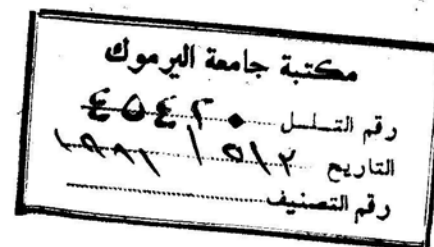 مكتبة جامعة اليرموك
رقم التسلسل ٤٥٤٢٠
التاريخ ١٩٨١ / ٥١٢
رقم التصنيف